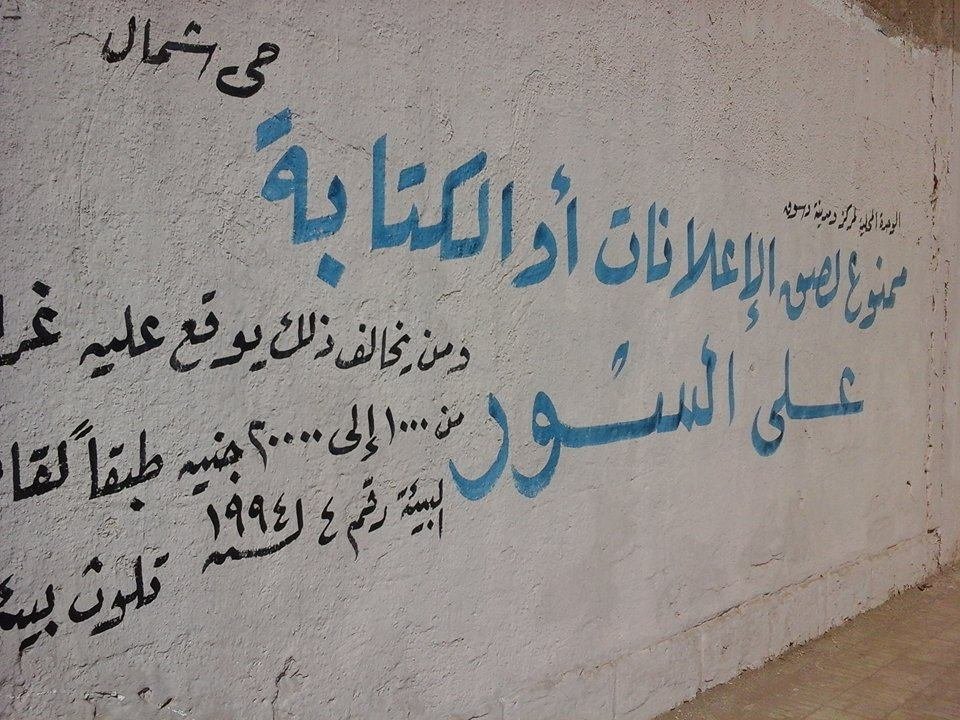 حى شمال
الوحدة المحلية لمركز ومدينة دسوق
ممنوع لصق الإعلانات أو الكتابة
على السور
ومن يخالف ذلك يوقع عليه غرا
من ١٠٠٠ إلى ٢٠٠٠٠ جنيه طبقاً لقا
البيئة رقم ٤ لسنه ١٩٩٤
تلوث بيئ